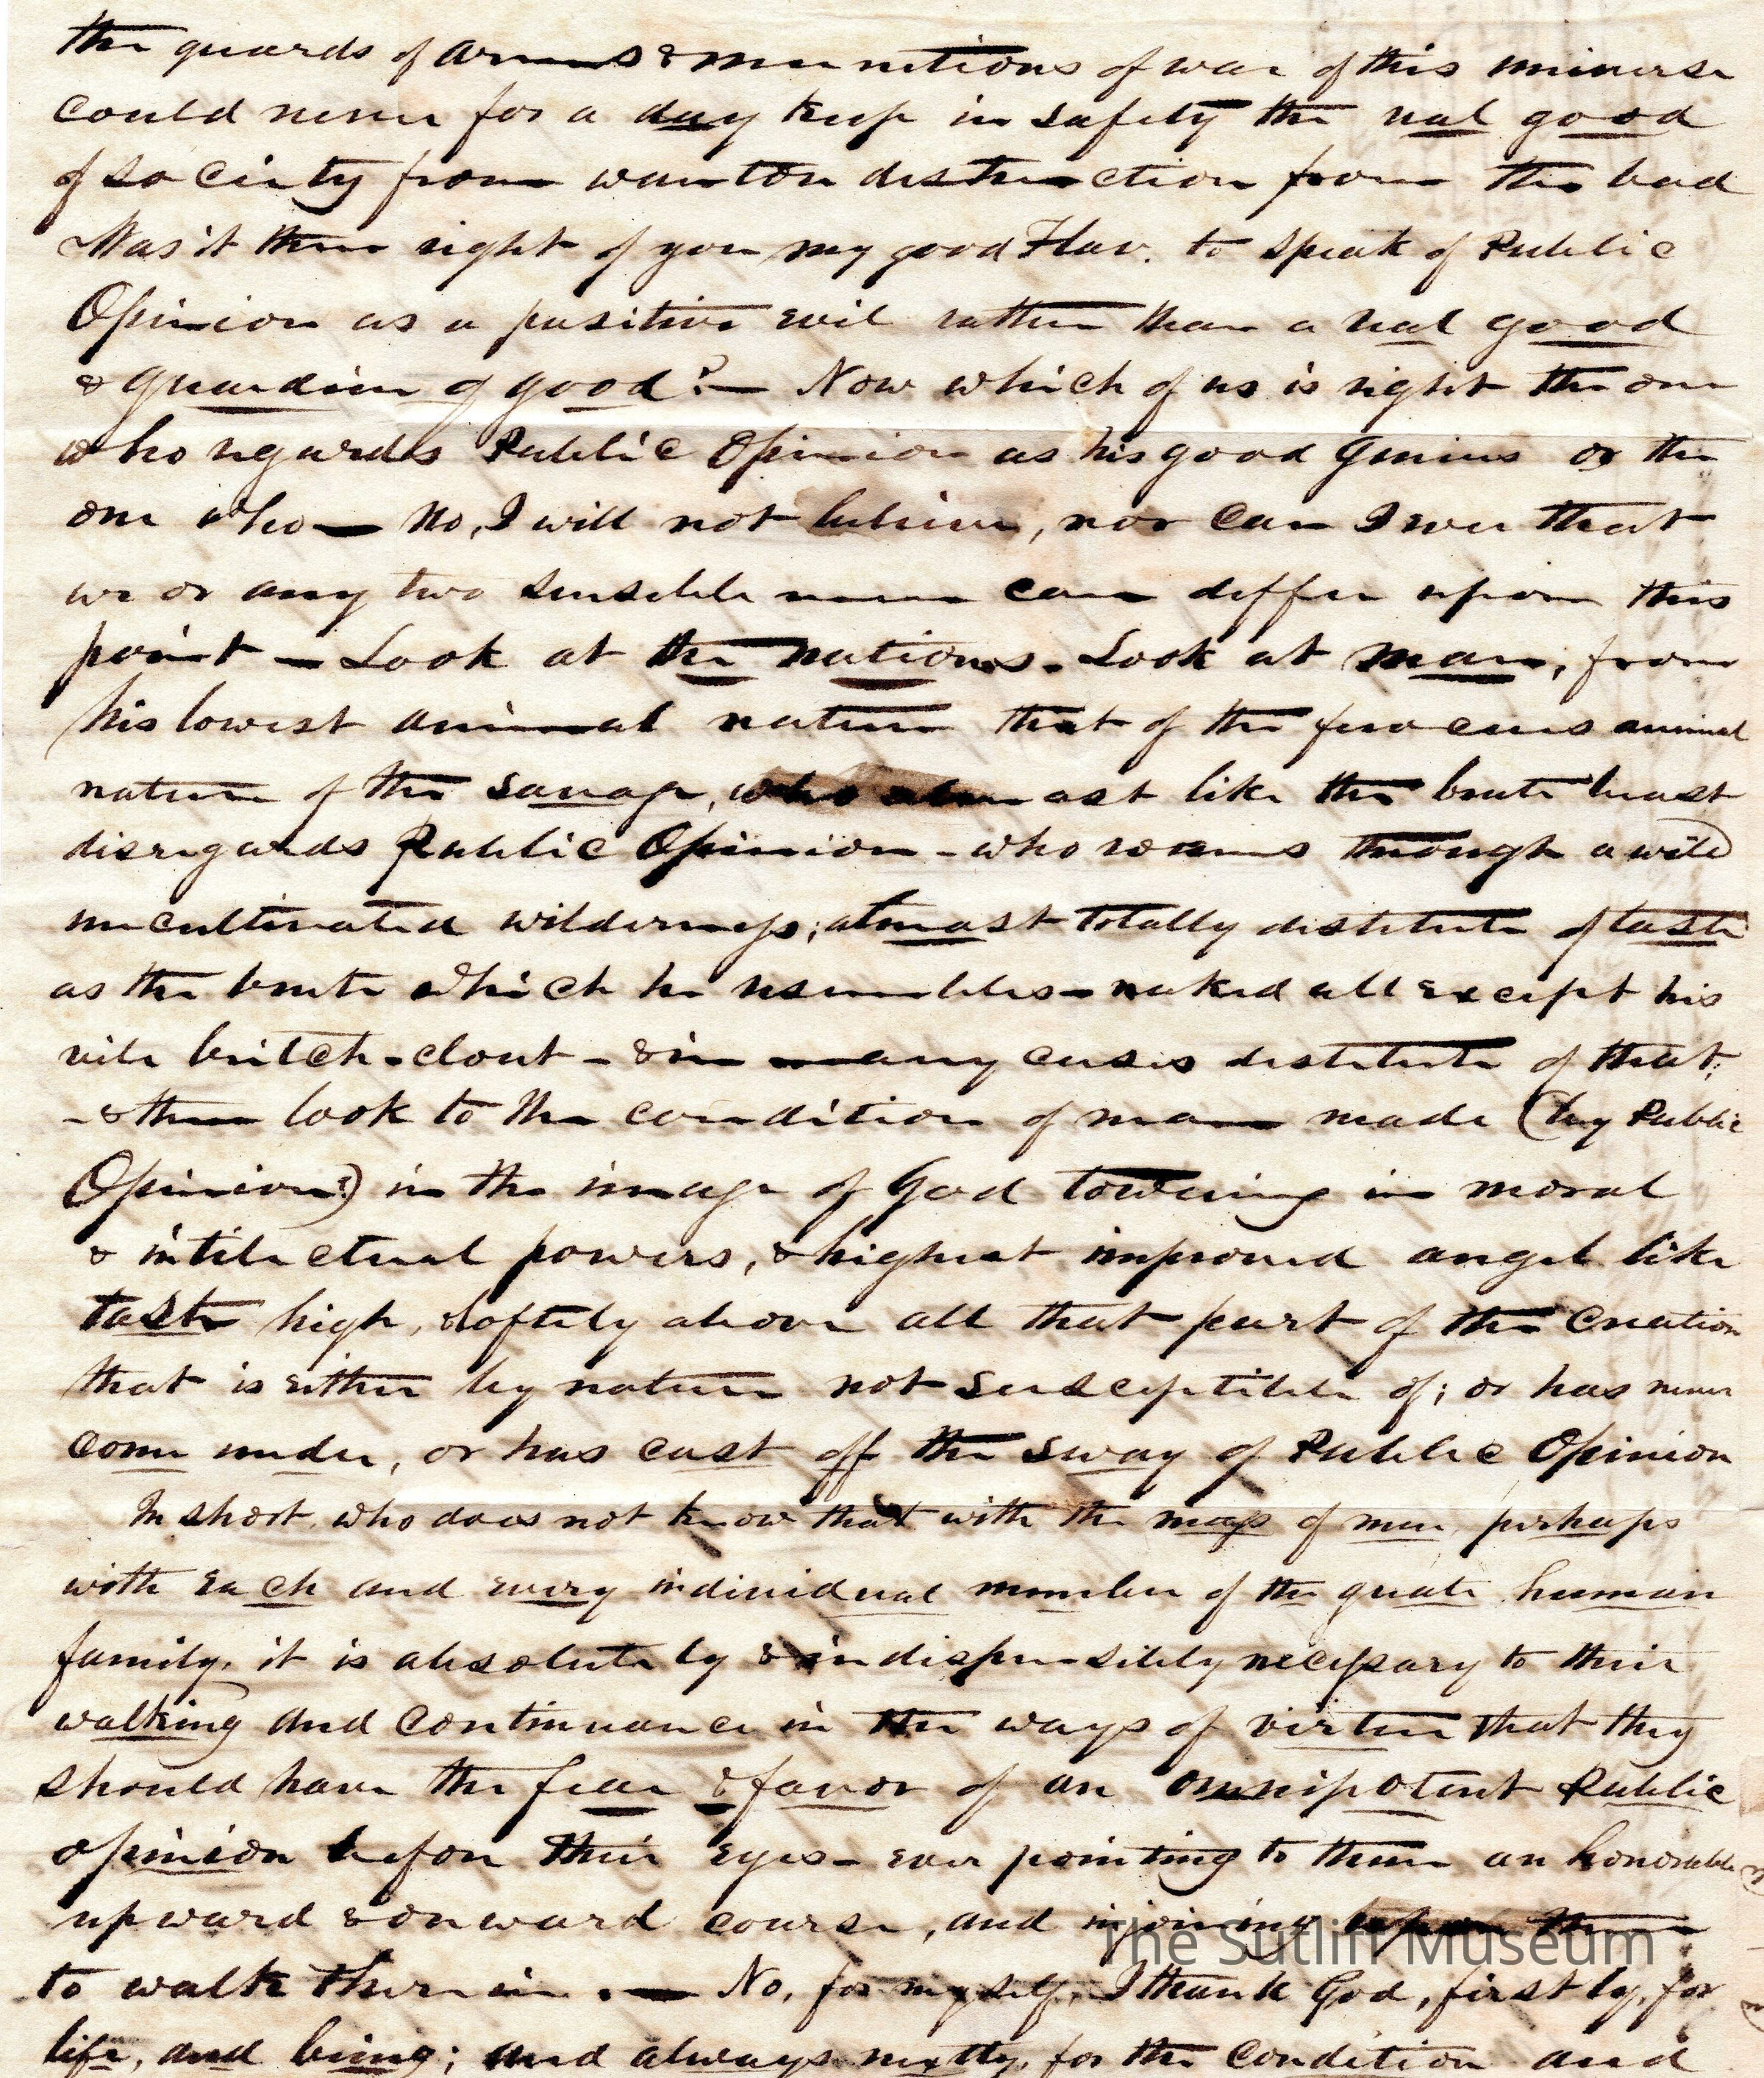 the guards of arms & munitions of war of this universe
could never for a day keep in safety the real good
of society from wanton destruction from the bad
Was it then right of you my good Flav. to speak of Public
Opinion as a positive evil rather than a real good
& guardian of good?— Now which of us is right the one
who regards Public Opinion as his good Genius or the
one who — No, I will not believe, nor can I ever that
we or any two sensible men can differ upon this
point — Look at the nations. Look at man, from
his lowest animal nature that of the ferocious animal
nature of the savage, who almost like the brute beast
disregards Public Opinion - who roams through a wild
uncultivated wilderness; almost totally distitute of taste
as the brute which he resembles - naked all except his
vile britch-clout - & in many cases destitute of that;
- & then look to the condition of man made (by Public
Opinion?) in the image of God towering in moral
& intilectual powers, & highest improved angel like
taste high, & loftily above all that part of the Creation
that is either by nature not susceptible of; or has never
come under, or has cast off the sway of Public Opinion
In short, who does not know that with the mass of men, perhaps
with each and every individual member of the greate human
family, it is absolutely & indispensibly necessary to their
walking and continuance in the ways of virtue that they
should have the fear & favor of an omnipotent Public
opinion before their eyes - ever pointing to them an honorable
upward & onward course, and injoining upon them
to walk therein. — No, for myself, I thank God, firstly, for
life, and being; and always nextly, for the condition and
The Sutliff Museum